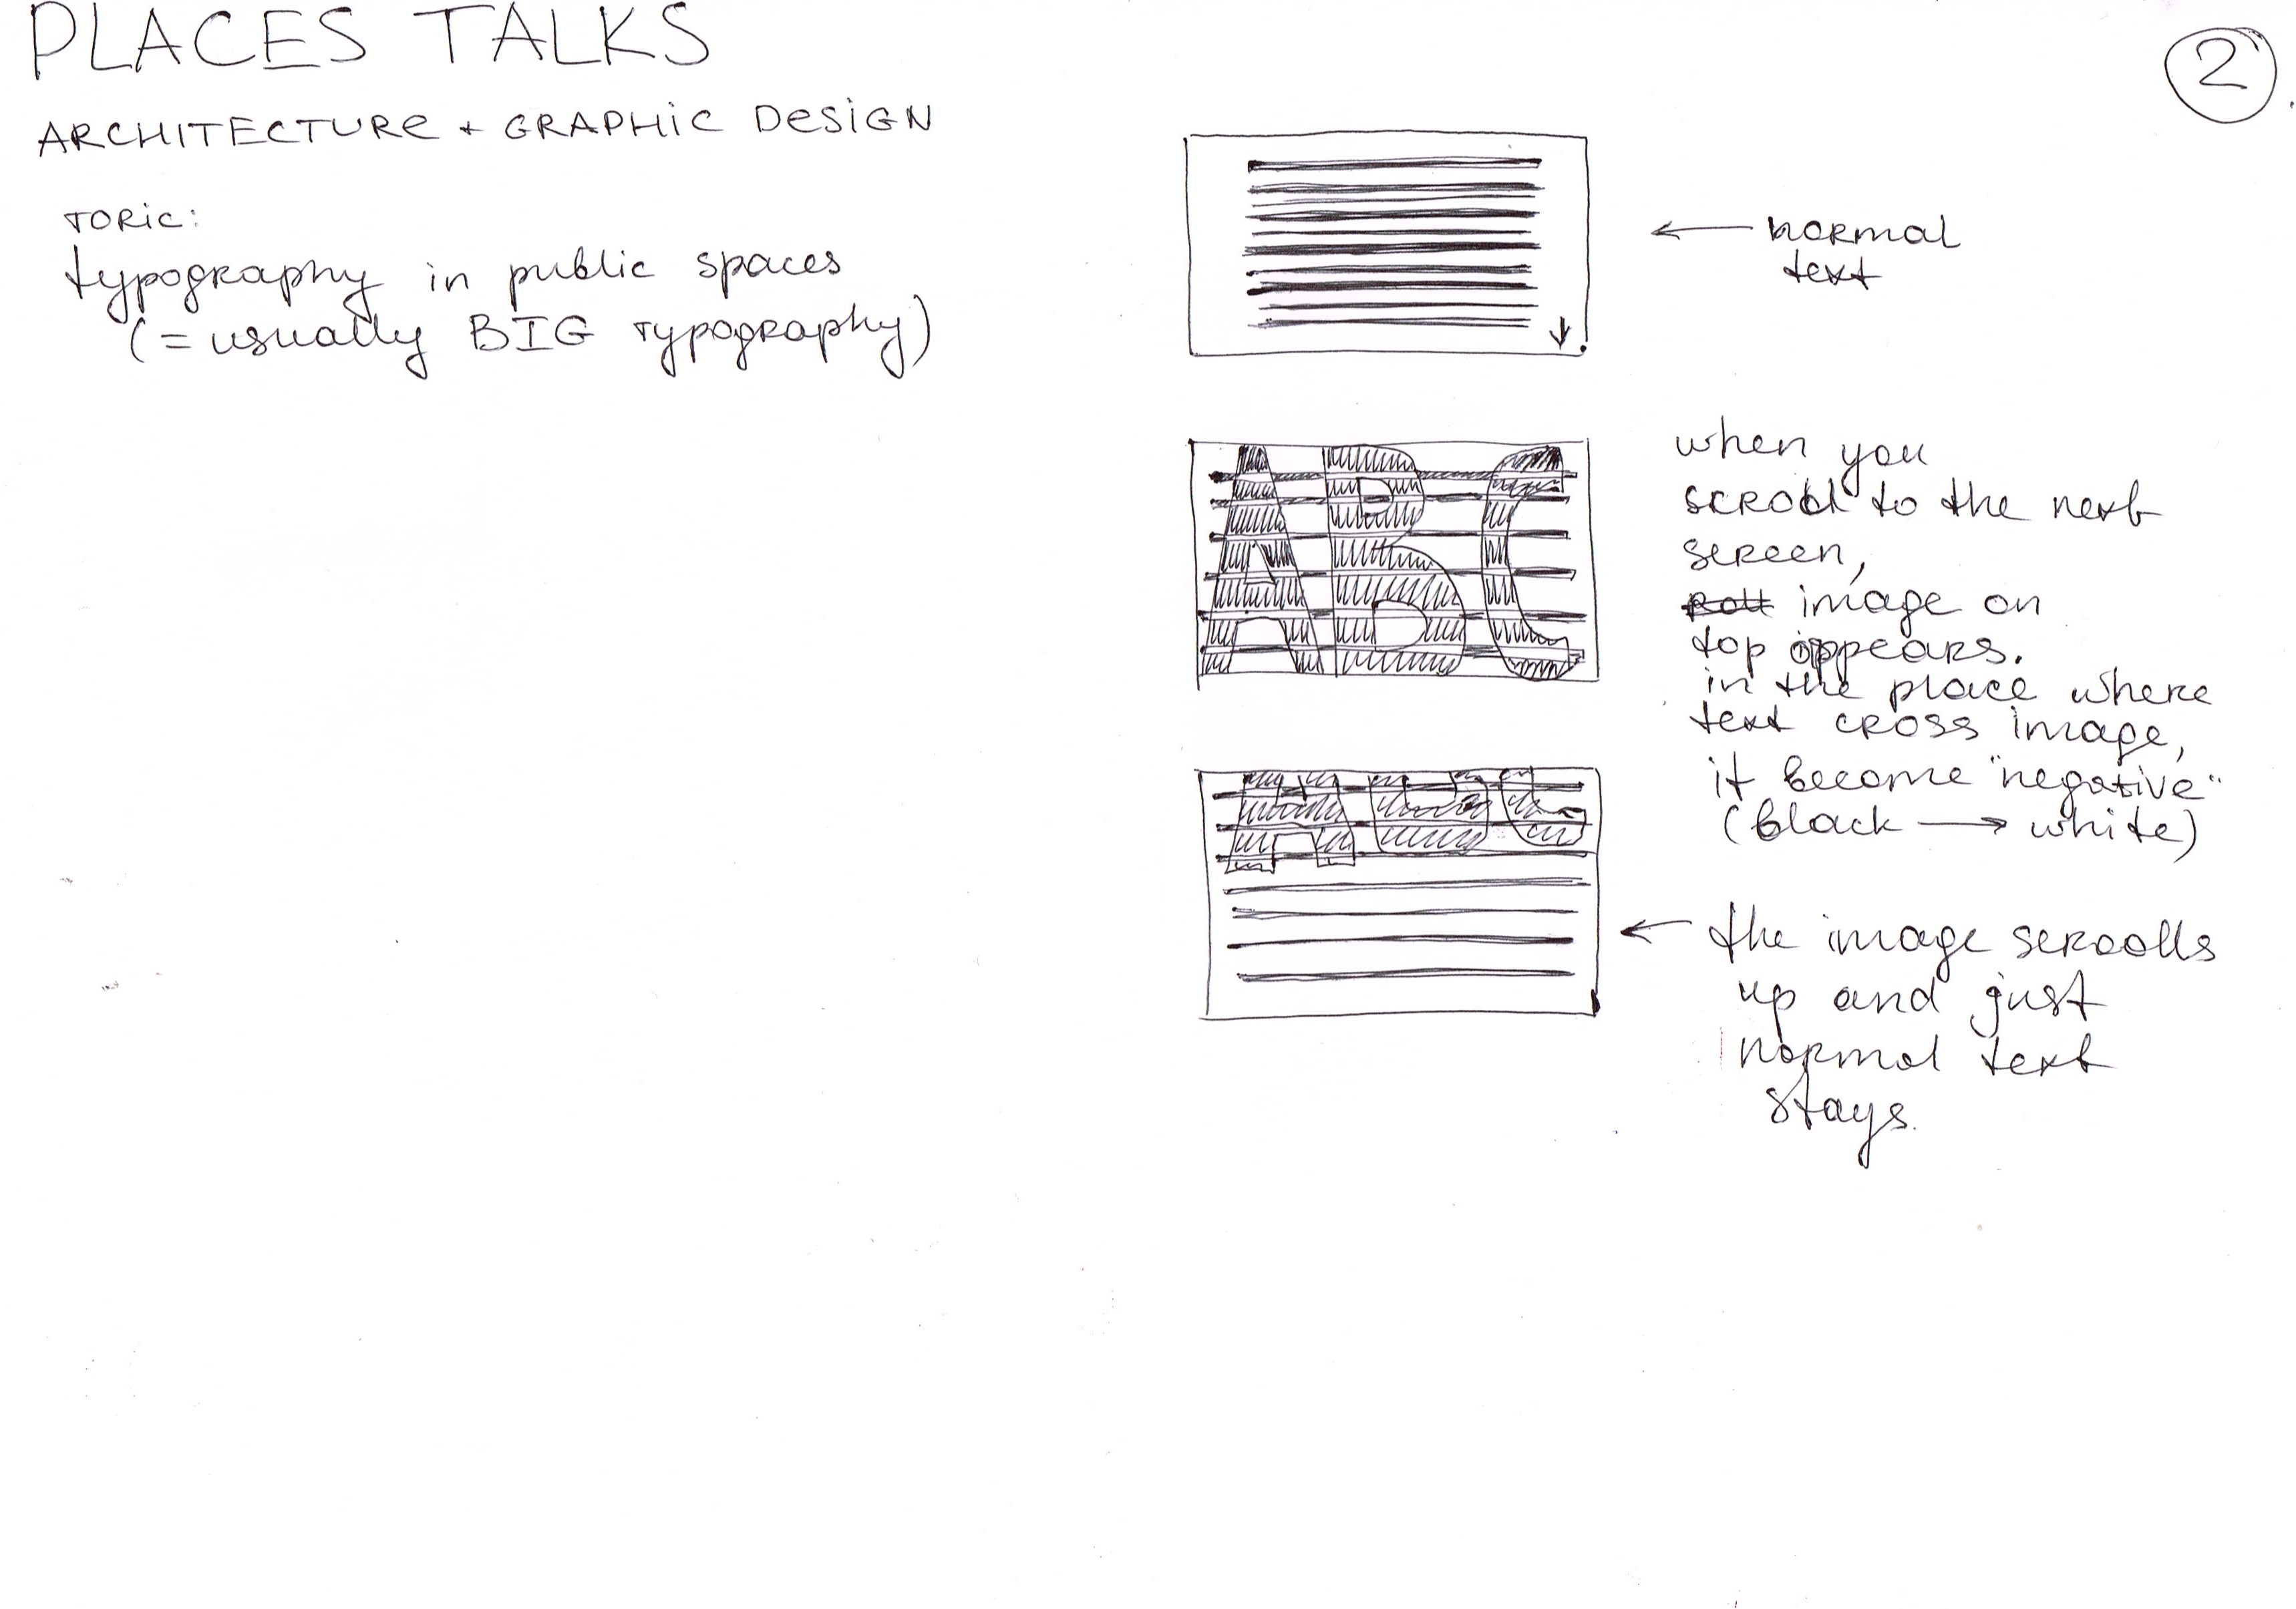 PLACES TALKS
2
ARCHITECTURE + GRAPHIC DESIGN
TOPIC:
typography in public spaces
(= usually BIG typography)
← normal
text
ABC
when you
scroll to the next
screen,
image on
top appears.
in the place where
text cross image,
it become "negative"
(black → white)
ABC
← the image scroolls
up and just
normal text
stays.